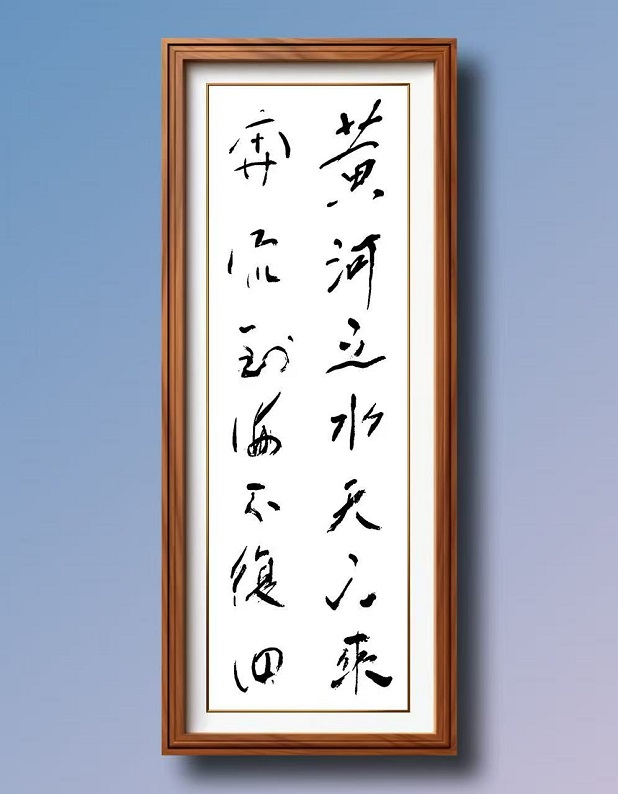 黄河之水天上來
奔流到海不復回